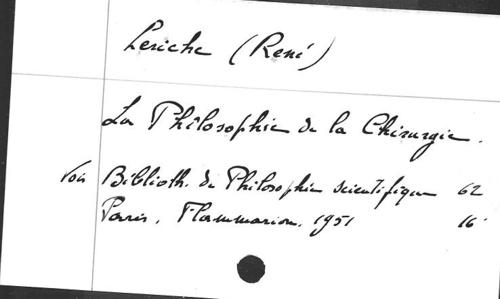 Leriche (René)
La Philosophie de la Chirurgie.
Voir Biblioth. de Philosophie scientifique 62
Paris, Flammarion, 1951 16